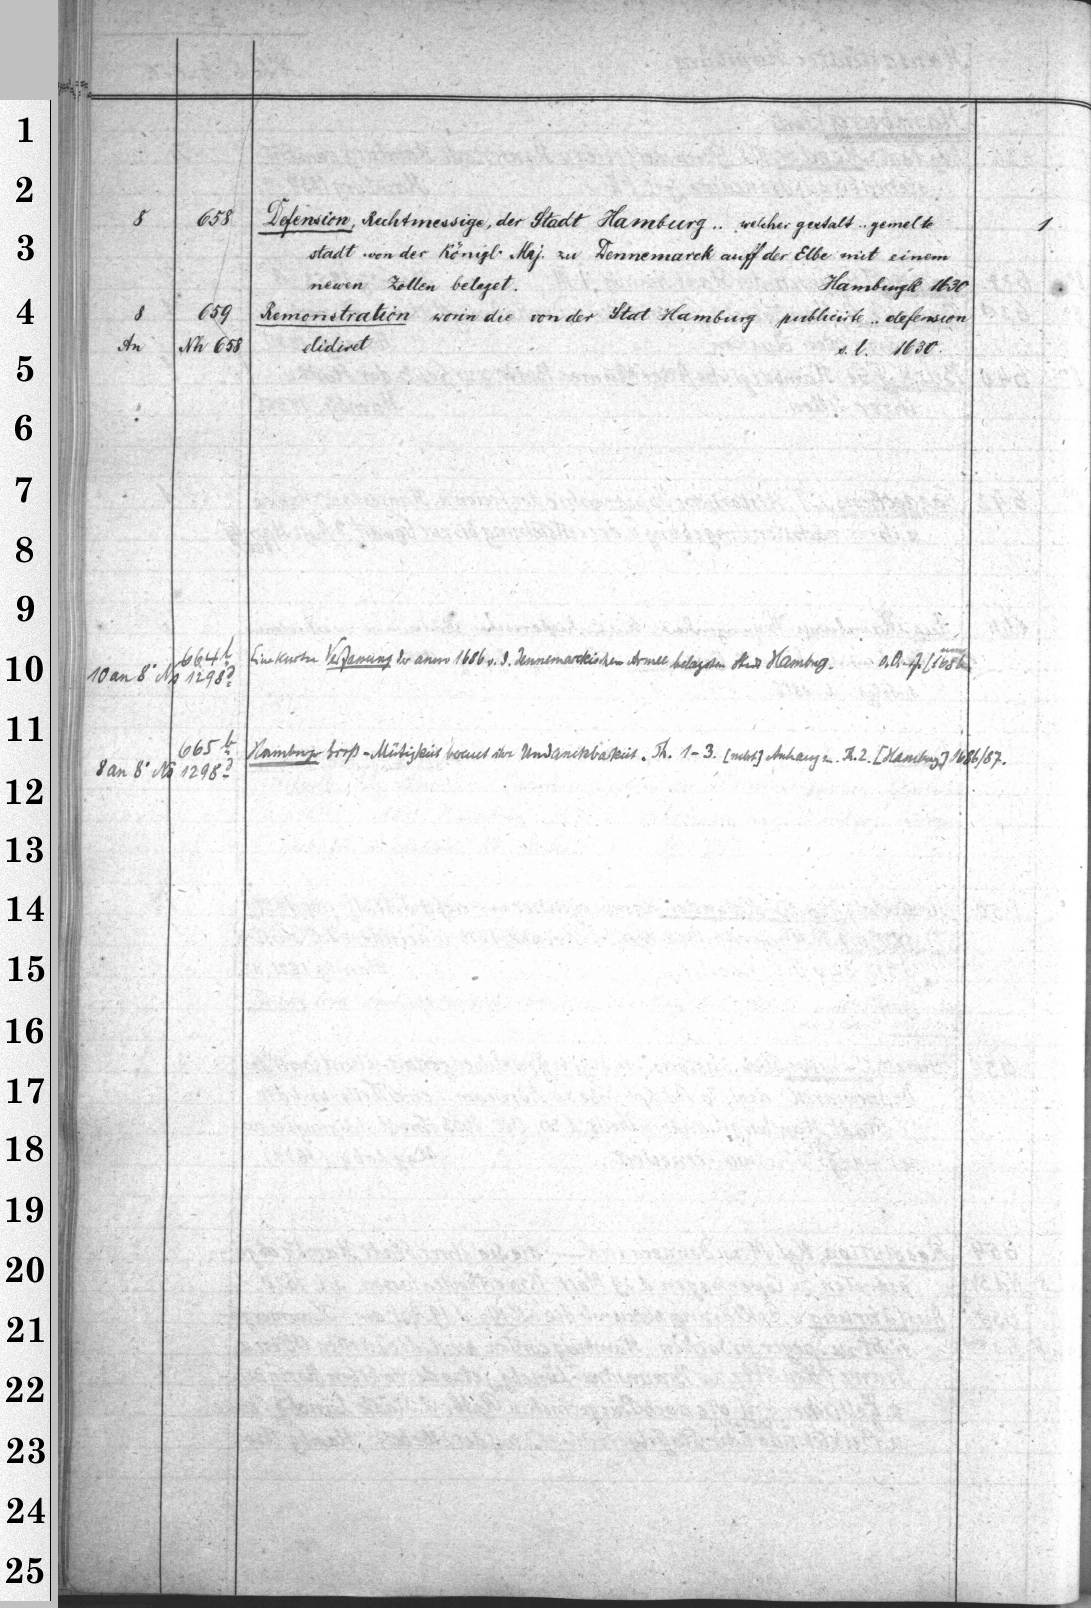 8 658 Defension, Rechtmessige, der Stadt Hamburg .. welcher gestalt .. gemelte 1
stadt von der Königl. Maj. zu Dennemarck auff der Elbe mit einem
newen Zollen beleget. Hamburgk 1630
8 659 Remonstration worin die von der Stat Hamburg publicirte .. defension
An Nh 658 elidiret s. l. 1630.
664b Eine kurtze der anno 1686 v. d. Dennemarckischen Armee belagerten Stadt Hamburg. o. O. [1686]
10 an 8° No 1298
665b Hamburgs Groß-Mütigkeit Undanckbarkeit. Th. 1-3. [nebst] Anhang z. Th. 2. [Hamburg] 1686/87.
8 an 8° No 1298
1
2
3
4
5
6
7
8
9
10
11
12
13
14
15
16
17
18
19
20
21
22
23
24
25